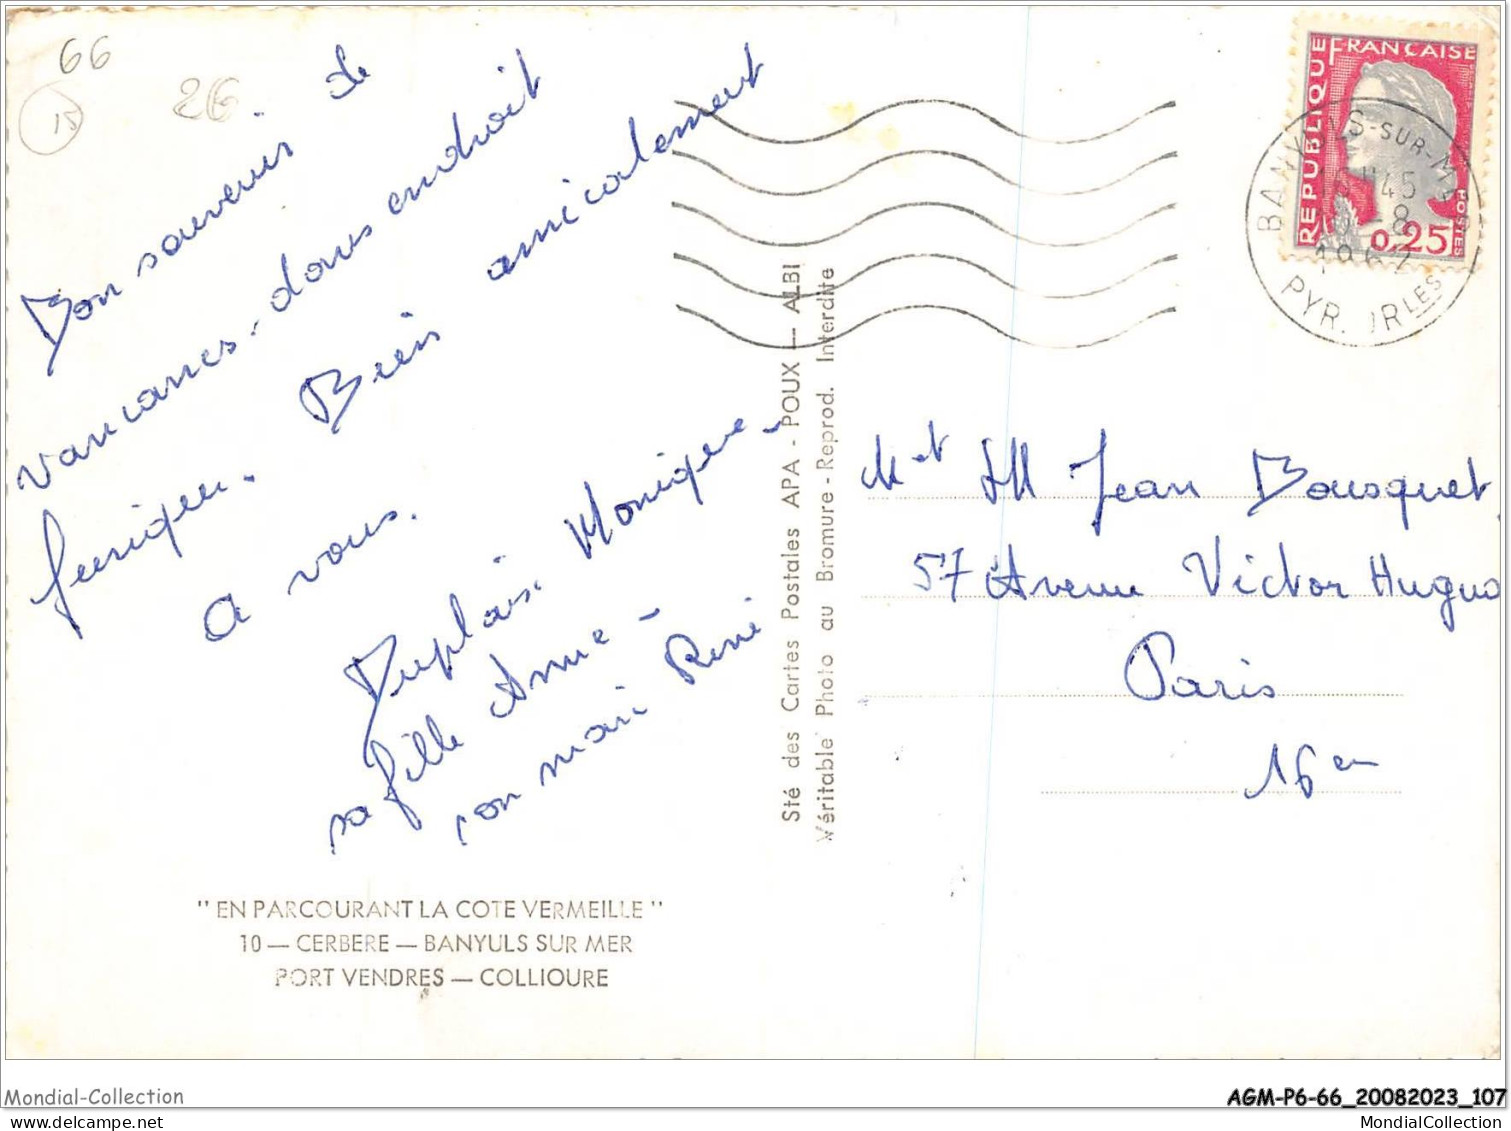 66
15
26
Bon souvenir de
vancances. dans endroit
feerique. Bien amicalement
a vous.
Duplais. Monique
sa fille Anne
son mari René
" EN PARCOURANT LA COTE VERMEILLE "
10 — CERBERE — BANYULS SUR MER
PORT VENDRES — COLLIOURE
Sté des Cartes Postales APA - POUX — ALBI
Véritable Photo au Bromure - Reprod. Interdite
REPUBLIQUE FRANCAISE
POSTES
0,25
BANYULS-SUR-M
45
-8
1962
PYR. ORLES
M et Jean Bousquet
57 Avenue Victor Hugo
Paris
16 em
Mondial-Collection
AGM-P6-66_20082023_107
MondialCollection